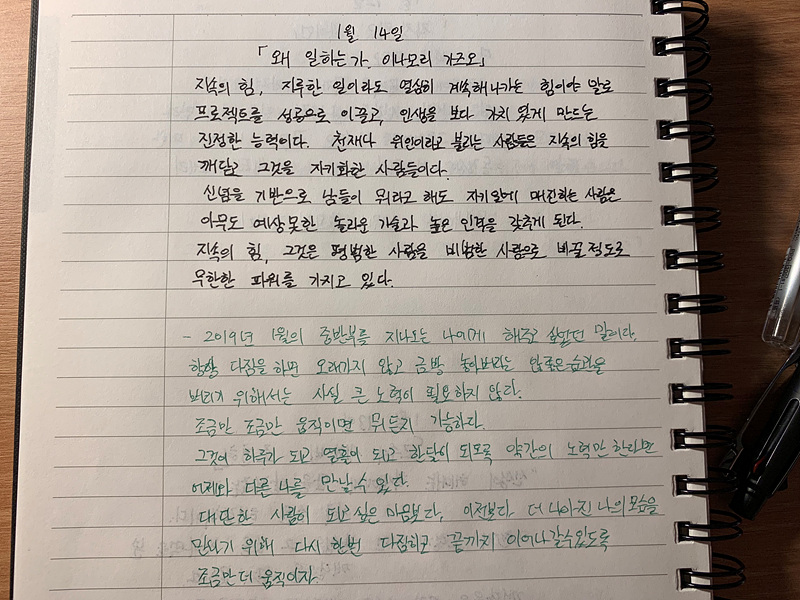 1월 14일
「왜 일하는가. 이나모리 가즈오」
지속의 힘, 지루한 일이라도 열심히 계속해나가는 힘이야 말로
프로젝트를 성공으로 이끌고, 인생을 보다 가치 있게 만드는
진정한 능력이다. 천재나 위인이라고 불리는 사람들은 지속의 힘을
깨닫고 그것을 자키화한 사람들이다.
신념을 기반으로 남들이 뭐라고 해도 자기일에 매진하는 사람은
아무도 예상못한 놀라운 기술과 높은 인격을 갖추게 된다.
지속의 힘, 그것은 평범한 사람을 비범한 사람으로 바꿀정도로
무한한 파워를 가지고 있다.
- 2019년 1월의 중반부를 지나오는 나에게 해주고 싶었던 말이다.
항상 다짐을 하면 오래가지 않고 금방 놓아버리는 않좋은 습관을
버리기 위해서는 사실 큰 노력이 필요하지 않다.
조금만 조금만 움직이면 뭐든지 가능하다.
그것이 하루가 되고 열흘이 되고 한달이 되도록 약간의 노력만 한다면
어제와 다른 나를 만날 수 있다.
대단한 사람이 되고 싶은 마음보다, 이전보다 더 나아진 나의 모습을
만나기 위해 다시 한번 다짐하고 끝까지 이어나갈수있도록
조금만 더 움직이자